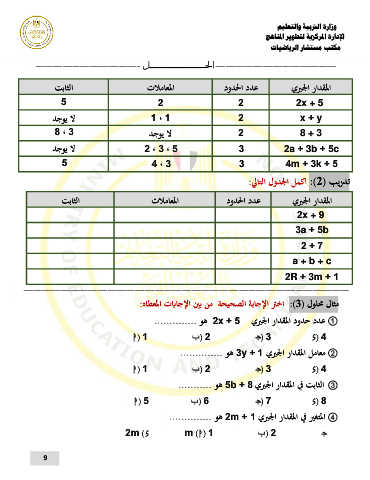 وزارة التربية والتعليم
الإدارة المركزية لتطوير المناهج
مكتب مستشار الرياضيات
الحـــــــــل
المقدار الجبري عدد الحدود المعاملات الثابت
2x + 5 2 2 5
x + y 2 1 ، 1 لا يوجد
8 + 3 2 لا يوجد 8 ، 3
2a + 3b + 5c 3 2 ، 3 ، 5 لا يوجد
4m + 3k + 5 3 4 ، 3 5
تدريب (2): أكمل الجدول التالي:
المقدار الجبري عدد الحدود المعاملات الثابت
2x + 9
3a + 5b
2 + 7
a + b + c
2R + 3m + 1
مثال محلول (3): اختر الإجابة الصحيحة من بين الإجابات المعطاه:
① عدد حدود المقدار الجبري 2x + 5 هو ...............
أ) 1 ب) 2 ج) 3 د) 4
② معامل المقدار الجبري 3y + 1 هو ...............
أ) 1 ب) 2 ج) 3 د) 4
③ الثابت في المقدار الجبري 5b + 8 هو ............
أ) 5 ب) 6 ج) 7 د) 8
④ المتغير في المقدار الجبري 2m + 1 هو ...............
أ) 1 m ب) 2 ج د) 2m
9